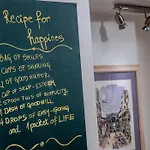 Recipe for
happiness
BAG OF SMILES
CUPS OF SHARING
OF GOOD HUMOR
CUP OF SELF-ESTEEM
SPOON FULL OF SIMPLICITY
DASH OF GOODWILL
DROPS OF EASY-GOING
and 1 packet of LIFE